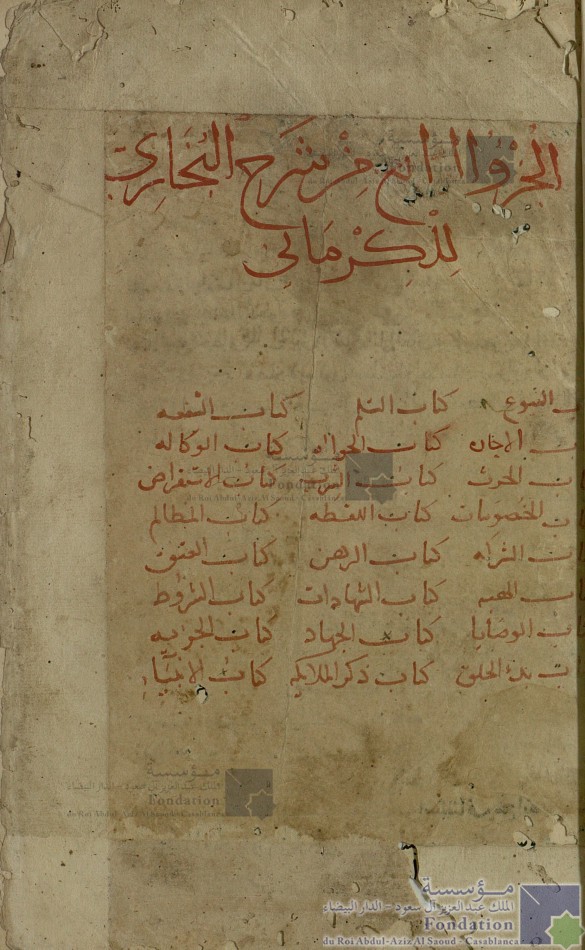 الجزؤ الرابع من شرح البخاري
للكرماني
كتاب البيوع كتاب السلم كتاب الشفعه
كتاب الاجاره كتاب الحواله كتاب الوكاله
كتاب الحرث كتاب الشرب كتاب الاستقراض
كتاب الخصومات كتاب اللقطه كتاب المظالم
كتاب الشركه كتاب الرهن كتاب العتق
كتاب الهبه كتاب الشهادات كتاب الشروط
كتاب الوصايا كتاب الجهاد كتاب الجزيه
كتاب بدء الخلق كتاب ذكر الملائكه كتاب الانبياء
مؤسسة
الملك عبد العزيز آل سعود - الدار البيضاء
Fondation
du Roi Abdul-Aziz Al Saoud - Casablanca